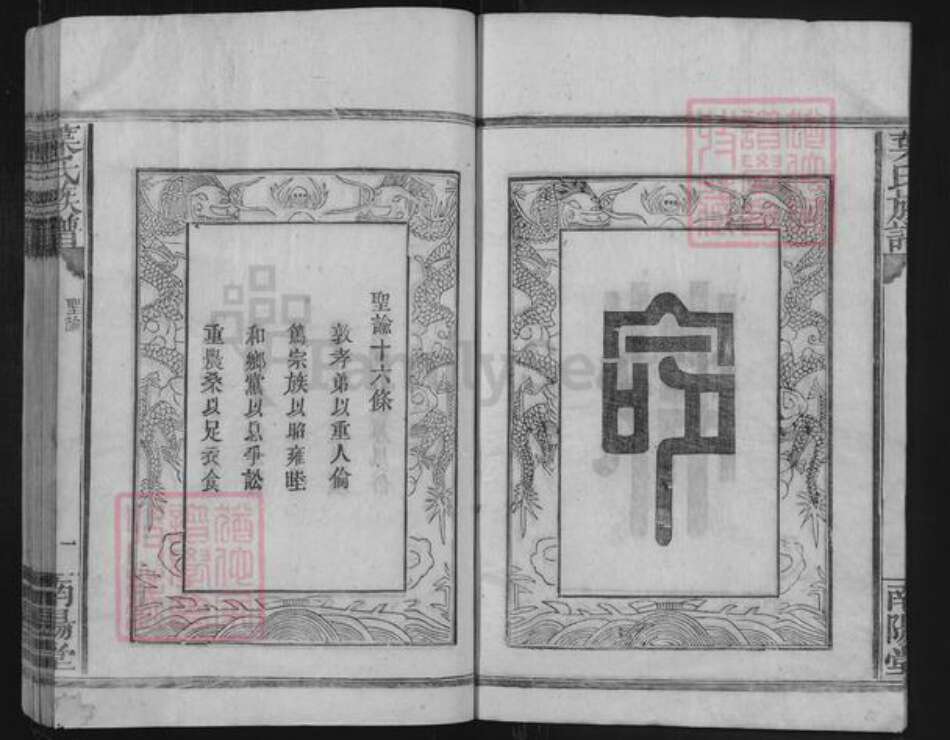 葉氏族譜
南陽堂
聖諭十六條
敦孝弟以重人倫
篤宗族以昭雍睦
和鄉黨以息爭訟
重農桑以足衣食
葉氏族譜
聖諭
一
南陽堂
FamilySearch